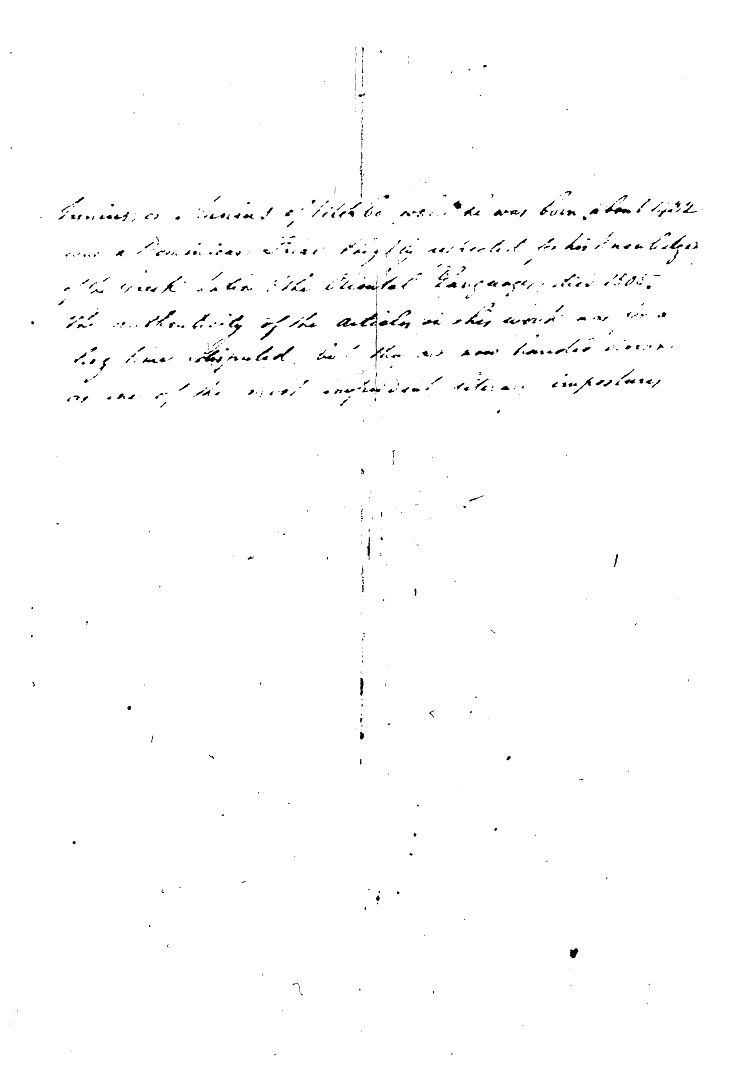 Annius, or Annius of Viterbo where he was born about 1432
was a Dominican Friar & highly respected for his knowledge
of the Greek Latin & the Oriental Languages, died 1502.
The authenticity of the articles in this work was for a
long time disputed, but they are now handed down
as one of the most impudent literary impostures